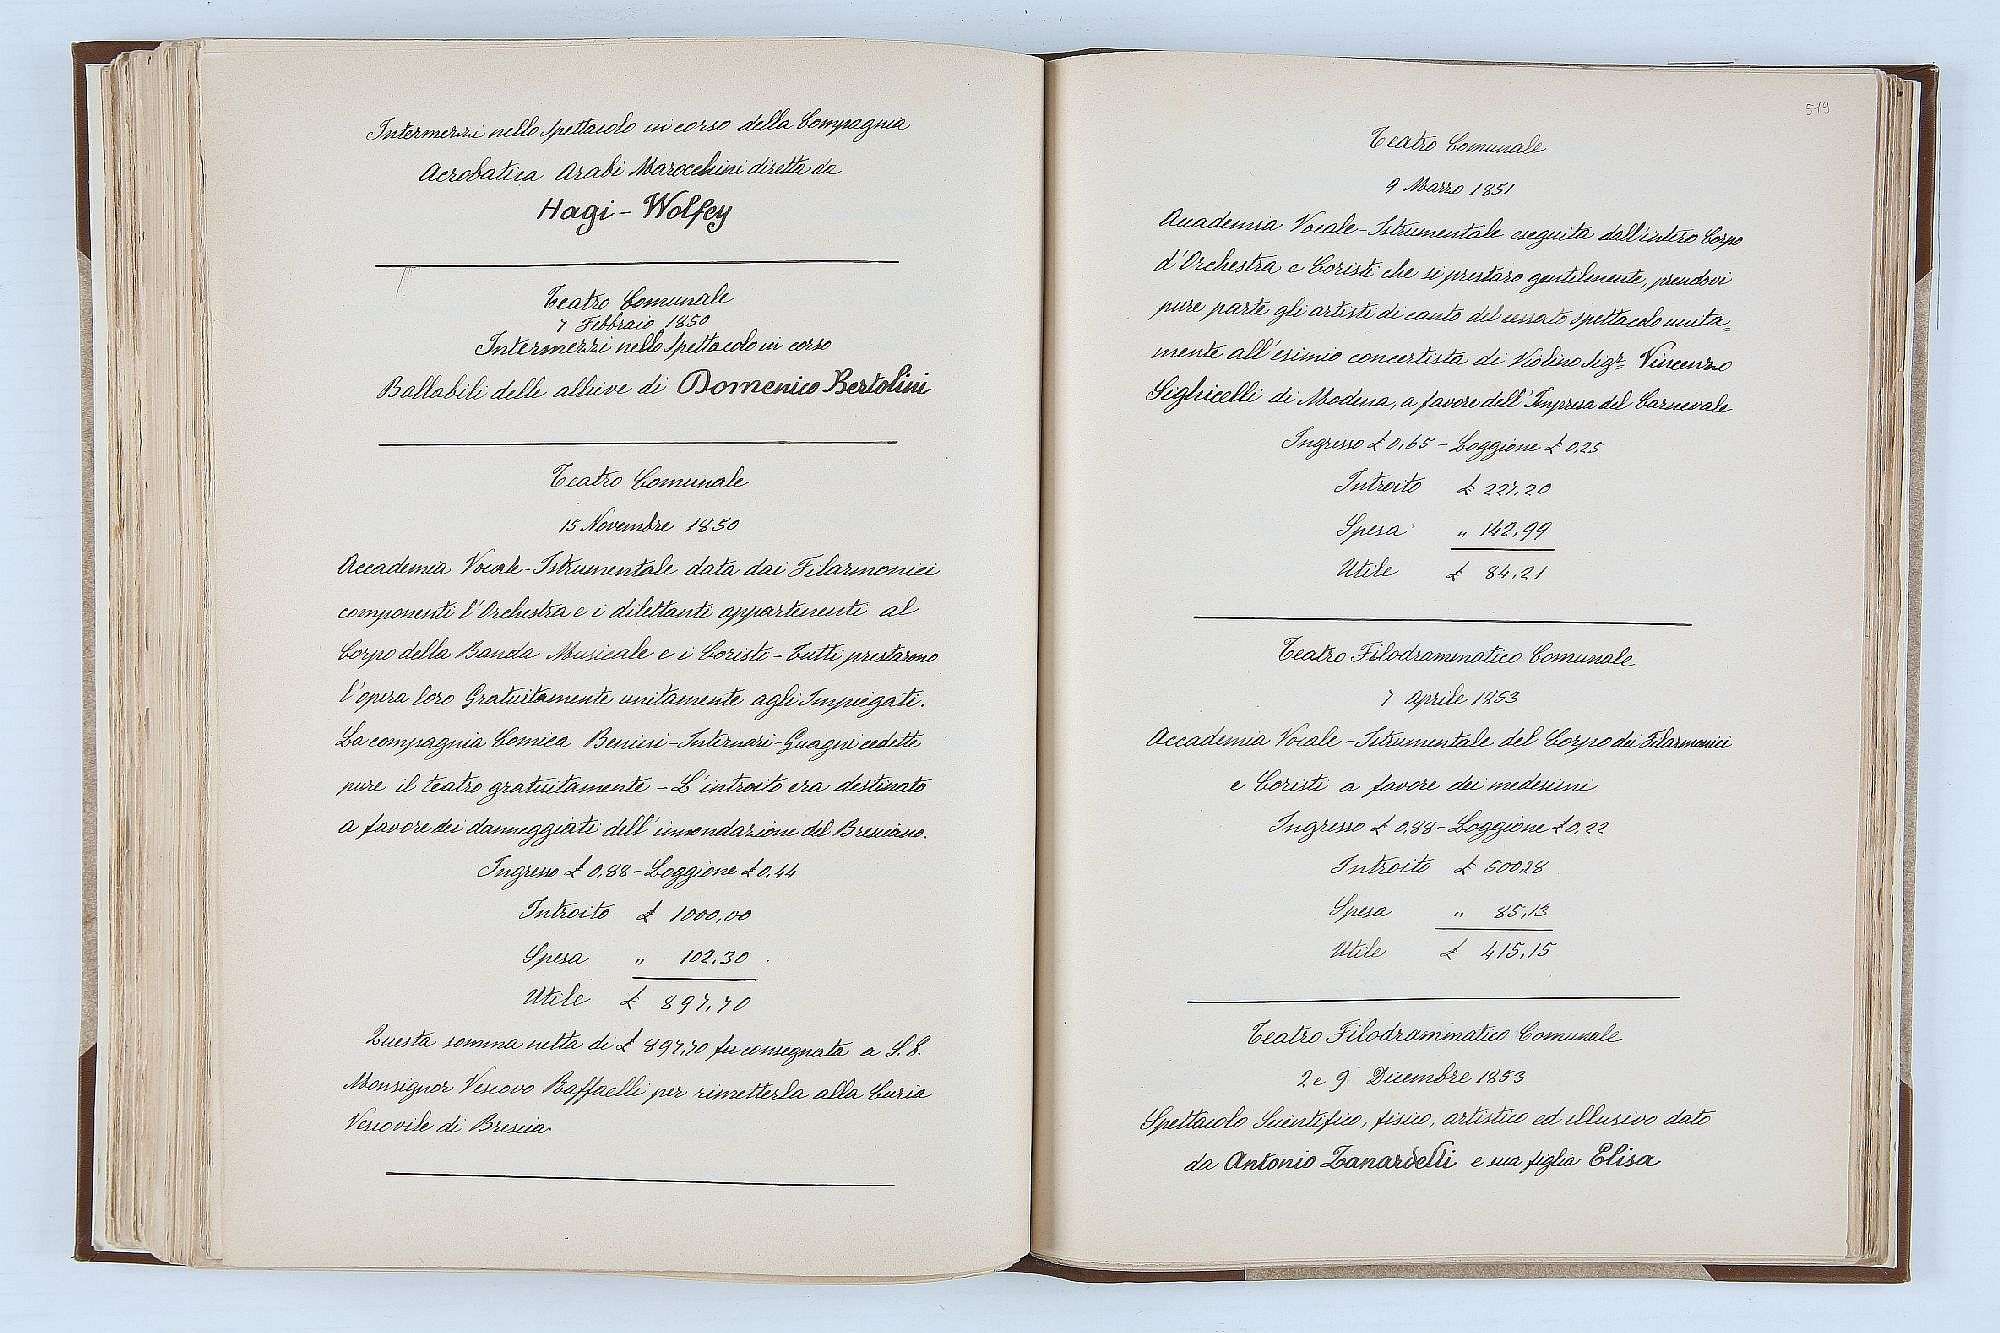 Intermezzi nello Spettacolo in corso della Compagnia
Acrobatica Arabi Marocchini diretta da
Hagi - Wolfey
Teatro Comunale
7 Febbraio 1850
Intermezzi nello Spettacolo in corso
Ballabili delle allieve di Domenico Bertolini
Teatro Comunale
15 Novembre 1850
Accademia Vocale-Istrumentale data dai Filarmonici
componenti l'Orchestra e i dilettanti appartenenti al
Corpo della Banda Musicale e i Coristi - Tutti prestarono
l'opera loro Gratuitamente unitamente agli Impiegati.
La compagnia Comica Benini-Internari-Guagni cedette
pure il teatro gratuitamente - L'introito era destinato
a favore dei danneggiati dell'innondazione del Bresciano.
Ingresso £ 0,88 - Loggione £ 0,44
Introito £ 1000,00
Spesa " 102.30
Utile £ 897,70
Questa somma netta di £ 897,70 fu consegnata a S. E.
Monsignor Vescovo Raffaelli per rimetterla alla Curia
Vescovile di Brescia
519
Teatro Comunale
9 Marzo 1851
Accademia Vocale-Istrumentale eseguita dall'intero Corpo
d'Orchestra e Coristi che si prestaro gentilmente, prendovi
pure parte gli artisti di canto del cessato spettacolo unita=
mente all'esimio concertista di Violino Sigr. Vincenzo
Sighicelli di Modena, a favore dell'Impresa del Carnevale
Ingresso £ 0,65 - Loggione £ 0,25
Introito £ 227,20
Spesa " 142,99
Utile £ 84,21
Teatro Filodrammatico Comunale
7 Aprile 1853
Accademia Vocale-Istrumentale del Corpo dei Filarmonici
e Coristi a favore dei medesimi
Ingresso £ 0,88 - Loggione £ 0,22
Introito £ 500,28
Spesa " 85,13
Utile £ 415,15
Teatro Filodrammatico Comunale
2 e 9 Dicembre 1853
Spettacolo Scientifico, fisico, artistico ed illusivo dato
da Antonio Zanardelli e sua figlia Elisa